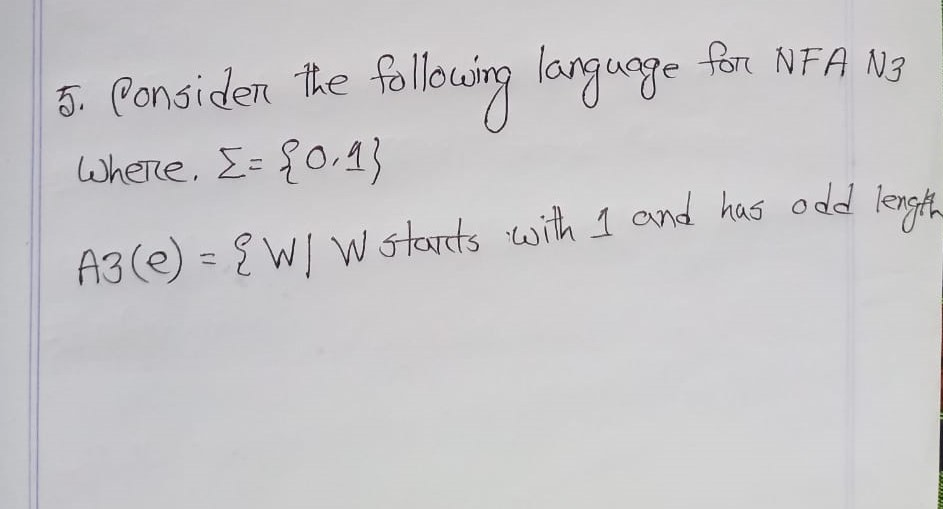 5. Consider the following language for NFA N3
Where. Σ = {0,1}
A3(e) = {W| W starts with 1 and has odd length